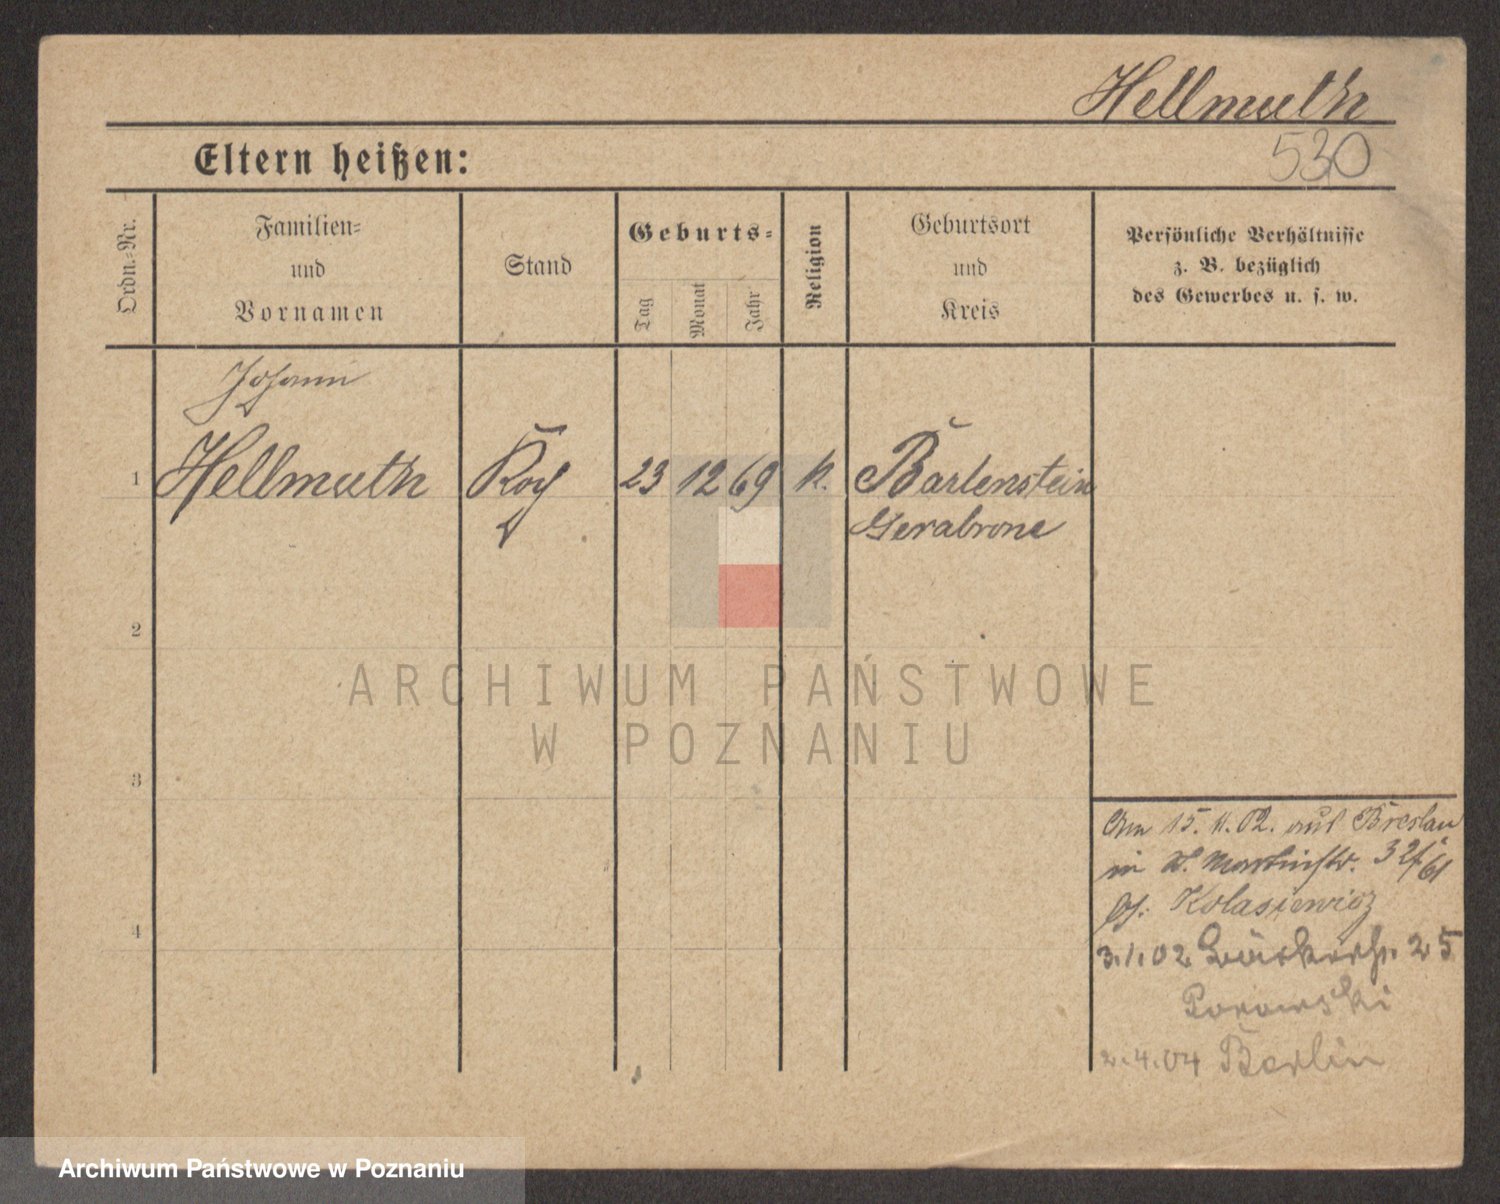 Hellmuth
Eltern heißen:
530
Ordn.-Nr.
Familien-
und
Vornamen
Stand
Geburts-
Tag
Monat
Jahr
Religion
Geburtsort
und
Kreis
Persönliche Verhältnisse
z. B. bezüglich
des Gewerbes u. s. w.
Johann
1 Hellmuth Koch 23 12 69 k. Bartenstein
Gerabronn
2
3
4
Am 15. 11. 02. aus Breslau
in St. Martinstr.
bei Kolasiewicz
3.1.02 25
2.4.04 Berlin
ARCHIWUM PAŃSTWOWE
W POZNANIU
Archiwum Państwowe w Poznaniu